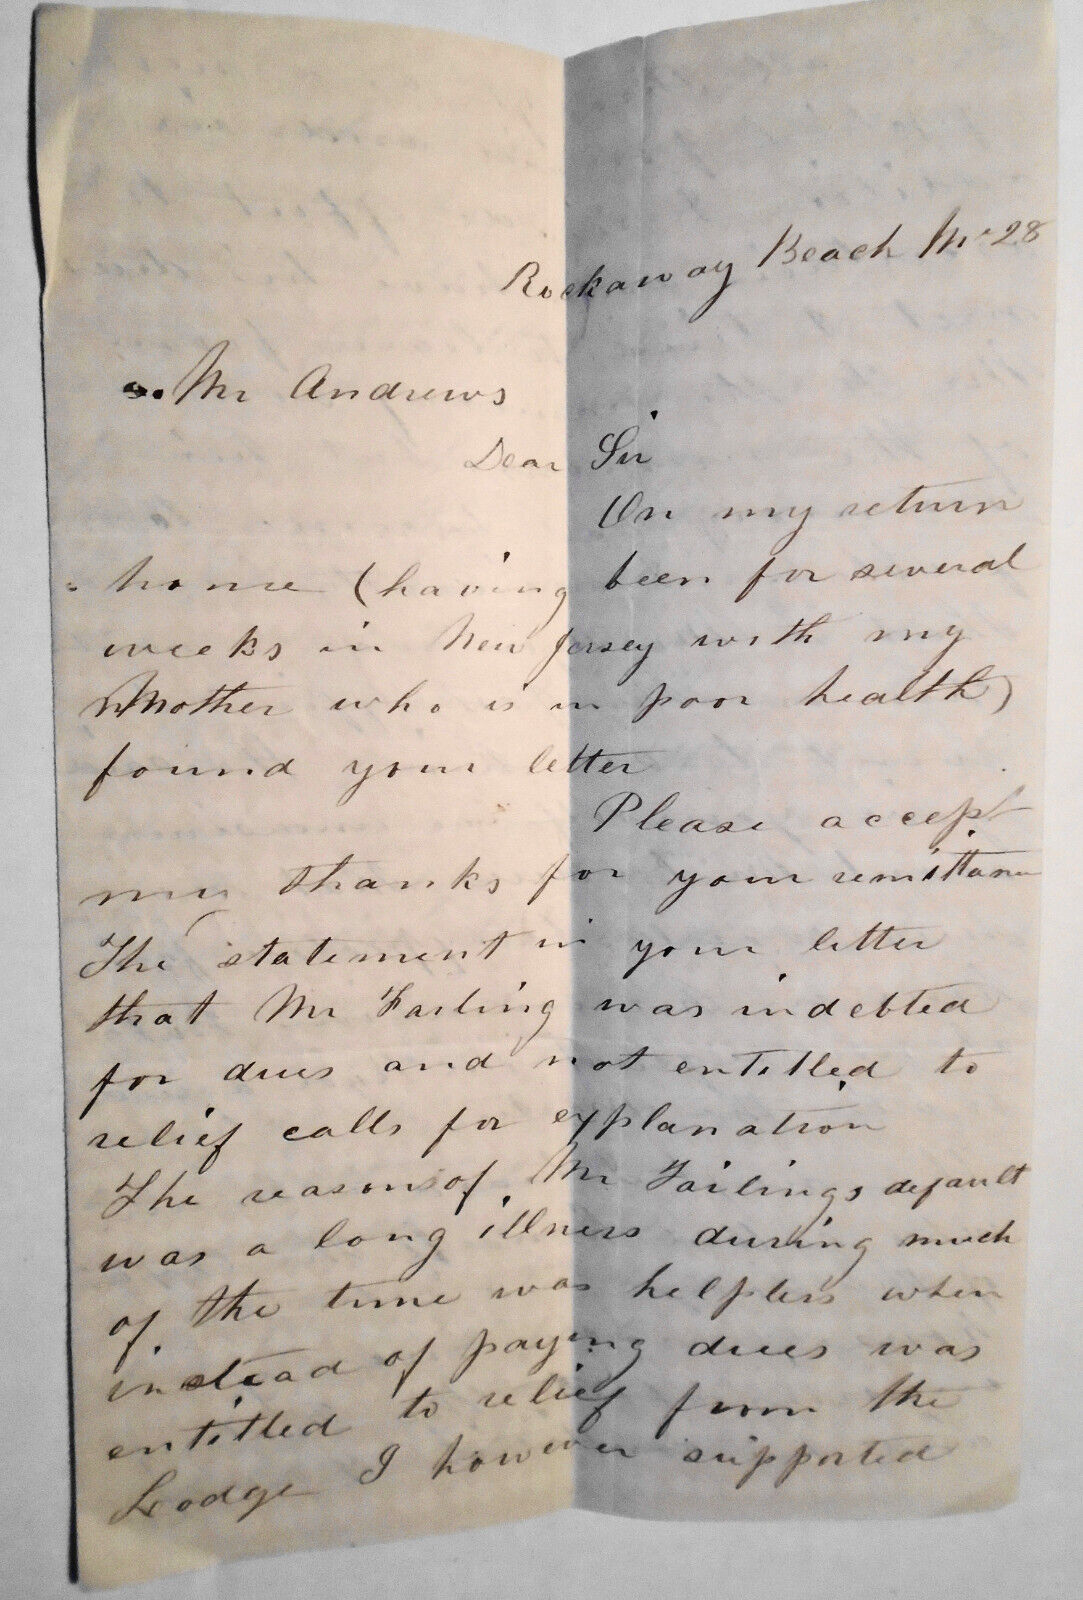 Rockaway Beach Mr 28
Mr Andrews
Dear Sir
On my return
home (having been for several
weeks in New Jersey with my
Mother who is in poor health)
found your letter
Please accept
my thanks for your remittance
The statement in your letter
that Mr Failing was indebted
for dues and not entitled to
relief calls for explanation
The reason of Mr Failings default
was a long illness during much
of the time was helpless when
instead of paying dues was
entitled to relief from the
Lodge I however supported